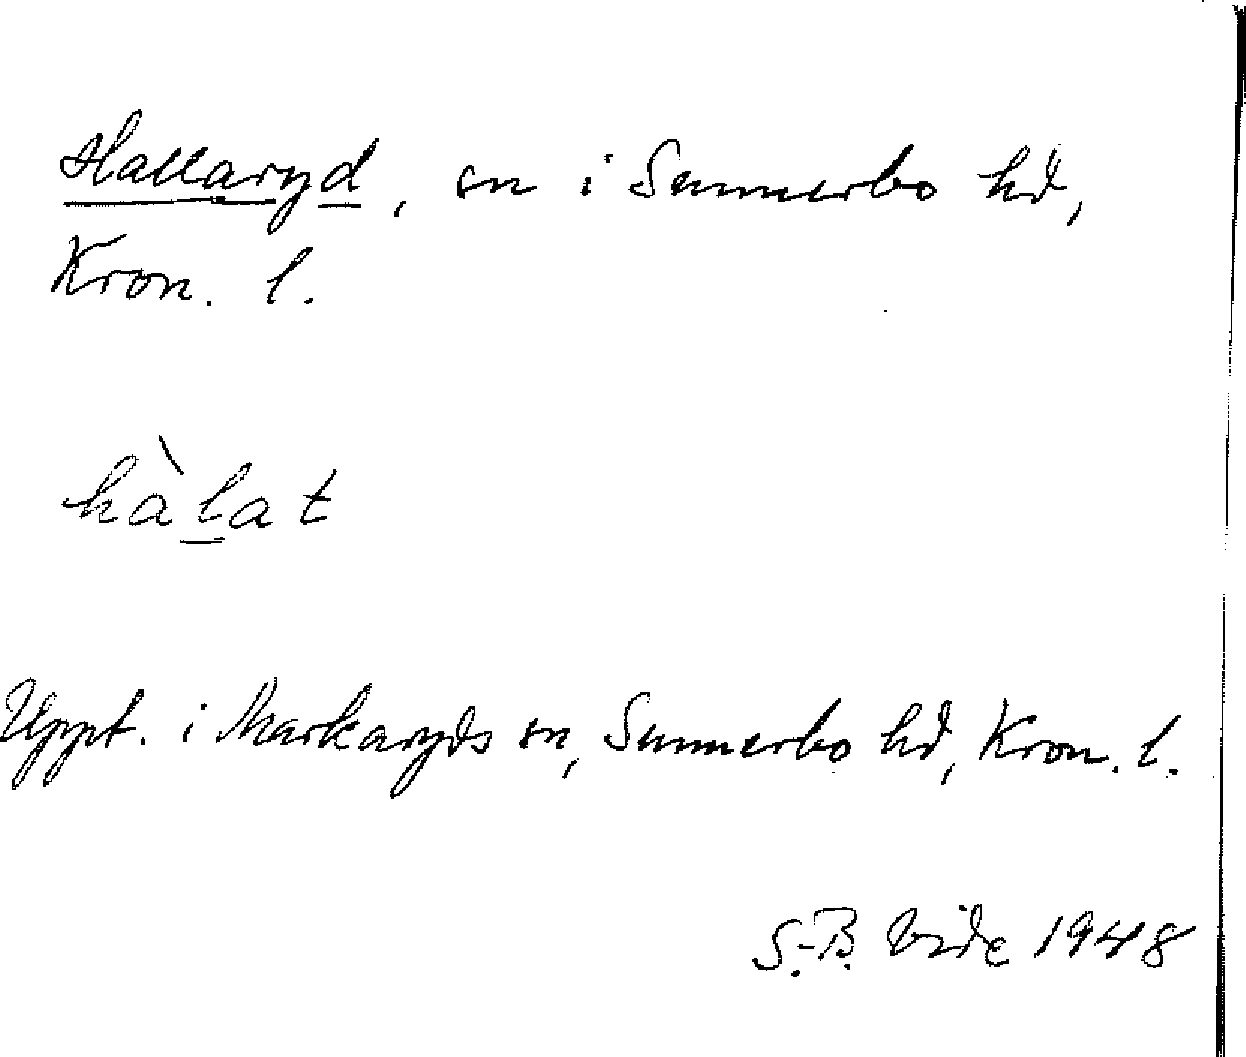 Hallaryd, sn i Sunnerbo hd,
Kron. l.
hàl̲at
Uppt. i Markaryds sn, Sunnerbo hd, Kron. l.
S.-B. Vide 1948